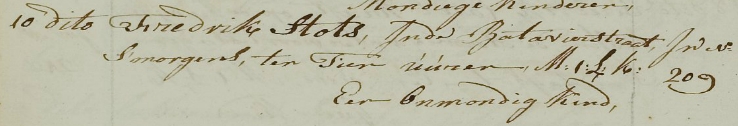 Mondiege kinderen,
10 dito Fredrik Stots, Inde Bataviestraat, In No
Smorgens, ter Tien úúúren, M: 1:4: k: 209
Een Onmondig Kind,